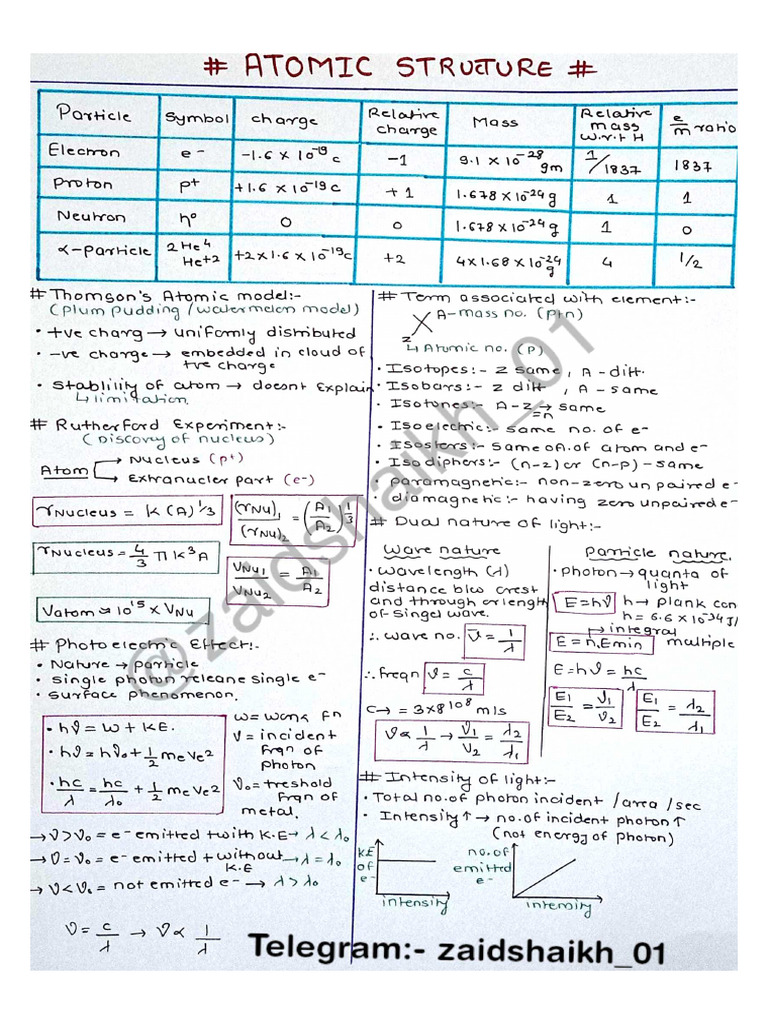 # ATOMIC STRUCTURE #
Particle Symbol charge Relative charge Mass Relative mass w.r.t H e/m ratio
Electron e- -1.6 x 10^-19 c -1 9.1 x 10^-28 gm 1/1837 1837
Proton p+ +1.6 x 10^-19 c +1 1.678 x 10^-24 g 1 1
Neutron n° 0 0 1.678 x 10^-24 g 1 0
α-particle 2He4 He+2 +2 x 1.6 x 10^-19 c +2 4 x 1.68 x 10^-24 g 4 1/2
# Thomson's Atomic model:-
(plum pudding / watermelon model)
• +ve charg → uniformly distributed
• -ve charge → embedded in cloud of
+ve charge
• stablility of atom → doesnt Explain
↳ limitation.
# Rutherford Experiment:-
(Discovy of nucleus)
Atom → Nucleus (p+)
→ Extranucler part (e-)
rNucleus = K (A)^1/3
(rNu)1 / (rNu)2 = (A1/A2)^1/3
rNucleus = 4/3 π K^3 A
VNu1 / VNu2 = A1 / A2
Vatom ≈ 10^15 x VNu
# Photo electric Effect:-
• Nature → particle
• single photon release single e-
• surface phenomenon.
• hϑ = w + KE.
• hϑ = hϑ0 + 1/2 meVe2
• hc/λ = hc/λ0 + 1/2 meVe2
w = work fn
ϑ = incident
frqn of
photon
ϑ0 = treshold
frqn of
metal.
→ ϑ > ϑ0 = e- emitted + with K.E → λ < λ0
→ ϑ = ϑ0 = e- emitted + without K.E → λ = λ0
→ ϑ < ϑ0 = not emitted e- → λ > λ0
ϑ = c/λ → ϑ ∝ 1/λ
# Term associated with element:-
A - mass no. (p+n)
X
Z
↳ Atomic no. (p)
• Isotopes:- Z same, A - diff.
• Isobars:- Z diff, A - same
• Isotones:- A-Z → same
=n
• Isoelectric:- same no. of e-
• Isosters:- same of atom and e-
• Isodiphers:- (n-z) or (n-p) - same
• paramagnetic:- non-zero unpaired e-
• diamagnetic:- having zero unpaired e-
# Dual nature of light:-
Wave nature
• Wavelength (λ)
distance b/w crest
and through or length
of Singel wave.
∴ wave no. ϑ̄ = 1/λ
∴ Freqn ϑ = c/λ
C → = 3x8 10^8 m/s
ϑ ∝ 1/λ → ϑ1/ϑ2 = λ2/λ1
Particle nature.
• photon → quanta of
light
E = hϑ h → plank con
h = 6.6 x 10^-34 J/
→ integral
E = n.Emin multiple
E = hϑ = hc/λ
E1/E2 = ϑ1/ϑ2 E1/E2 = λ2/λ1
# Intensity of light:-
• Total no. of photon incident /area /sec
• Intensity ↑ → no. of incident photon ↑
(not energy of photon)
KE
of
e-
intensity
no. of
emitted
e-
intensity
@zaidshaikh_01
Telegram:- zaidshaikh_01